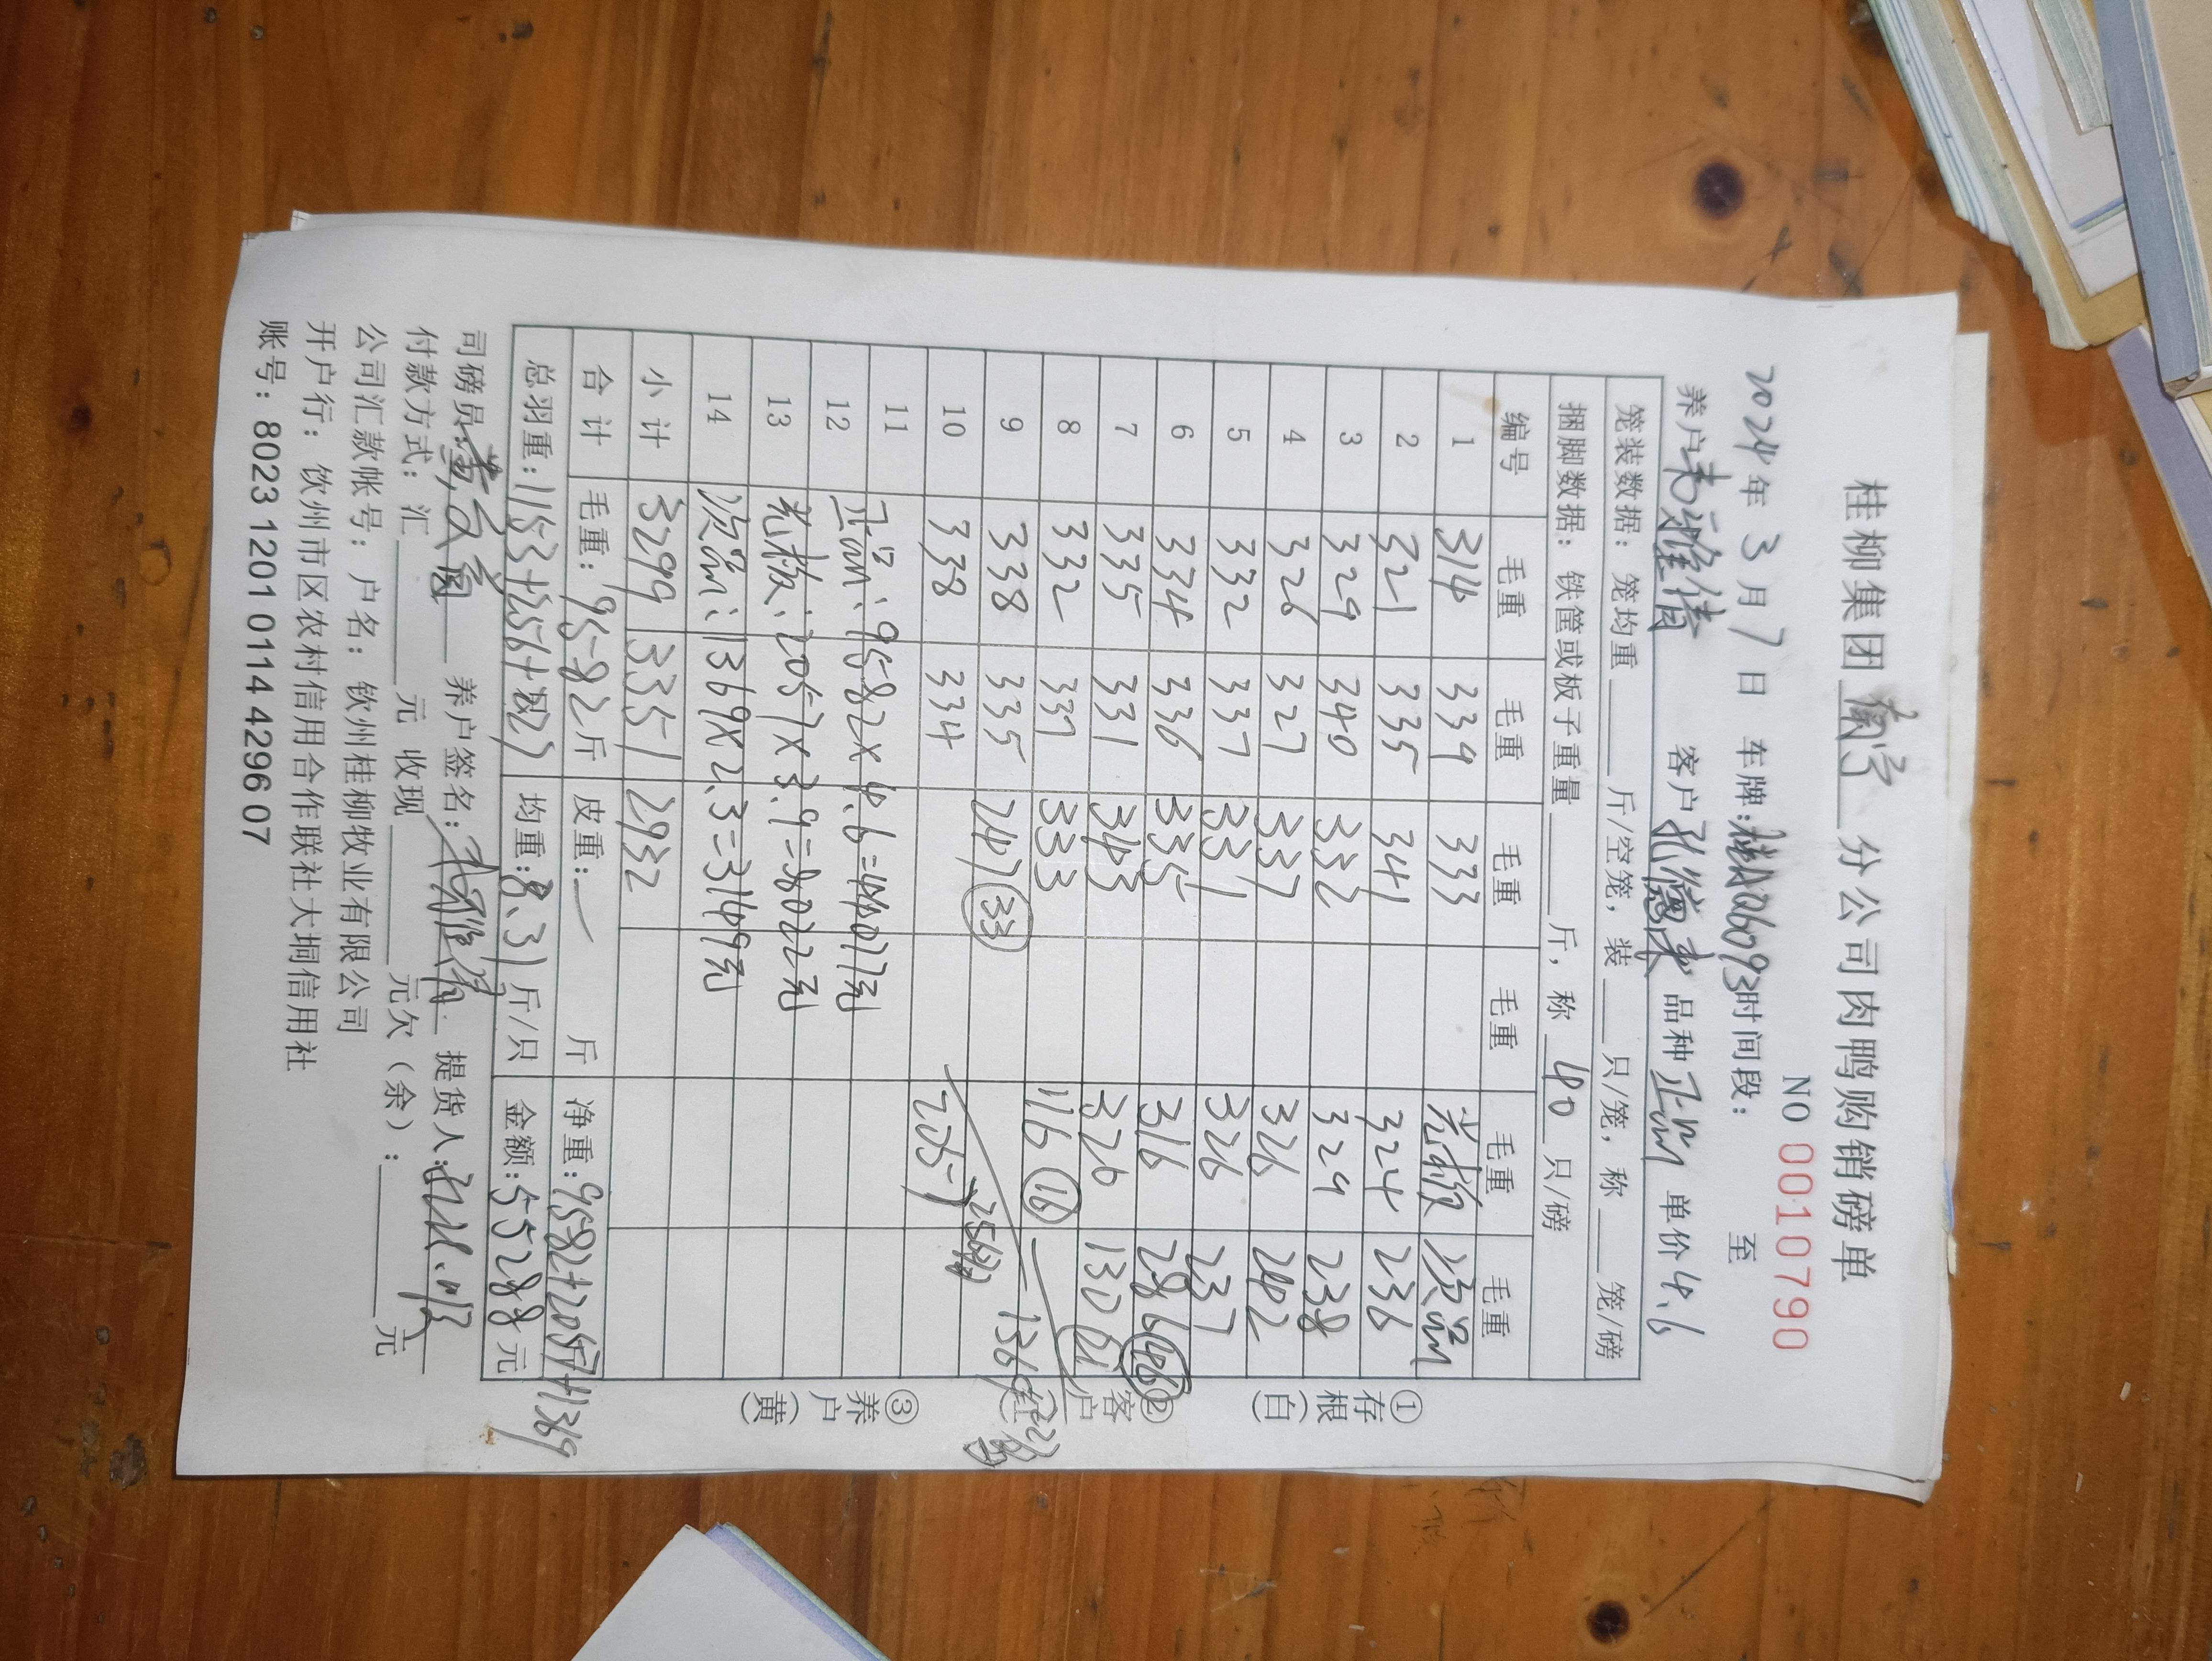 桂柳集团 南宁 分公司肉鸭购销磅单
NO 0010790
2024年 3月 7日 车牌:桂AQb093时间段: 至
养户 客户 孔德来 品种 正品 单价 4.6
笼装数据: 笼均重 斤/空笼, 装 只/笼, 称 笼/磅
捆脚数据: 铁筐或板子重量 斤, 称 40 只/磅
编号 毛重 毛重 毛重 毛重 毛重 毛重
1 314 339 333 光板 次品
2 321 335 341 324 236
3 329 340 332 329 238
4 326 327 337 326 242
5 332 337 331 326 237
6 334 336 335 316 286 46
7 335 331 343 320 130 21
8 332 337 333 116 16
9 338 335 247 33 1369
10 338 334 2057 256只
11 正品: 9582×4.6=44077元
12
13 光板: 2057×3.9=8022元
14 次品: 1369×2.3=3149元
小计 3299 3351 2932
合计 毛重: 9582斤 皮重: 斤 净重: 9582+2057+1369
总羽重: 1153+256+227 均重: 8.31斤/只 金额: 55288元
司磅员: 养户签名: 提货人:
付款方式: 汇 元 收现 元欠(余): 元
公司汇款帐号: 户名: 钦州桂柳牧业有限公司
开户行: 钦州市区农村信用合作联社大垌信用社
账号: 8023 1201 0114 4296 07
①存根(白)
②客户
③养户(黄)